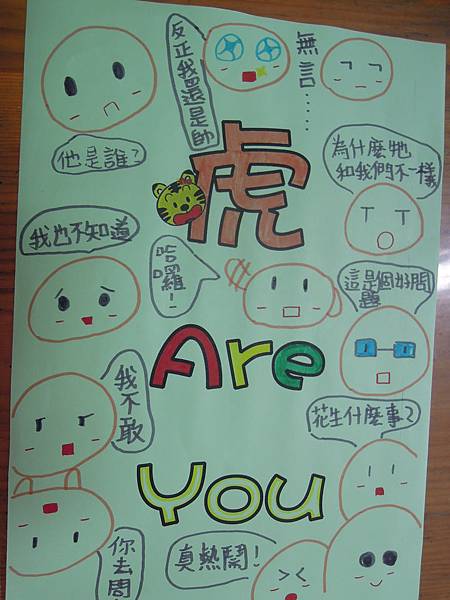 反正我還是帥
無言......
他是誰?
為什麼牠
和我們不一樣
虎
我也不知道
哈囉!
這是個好問
題
Are
我不敢
花生什麼事?
You
你去問
真熱鬧!